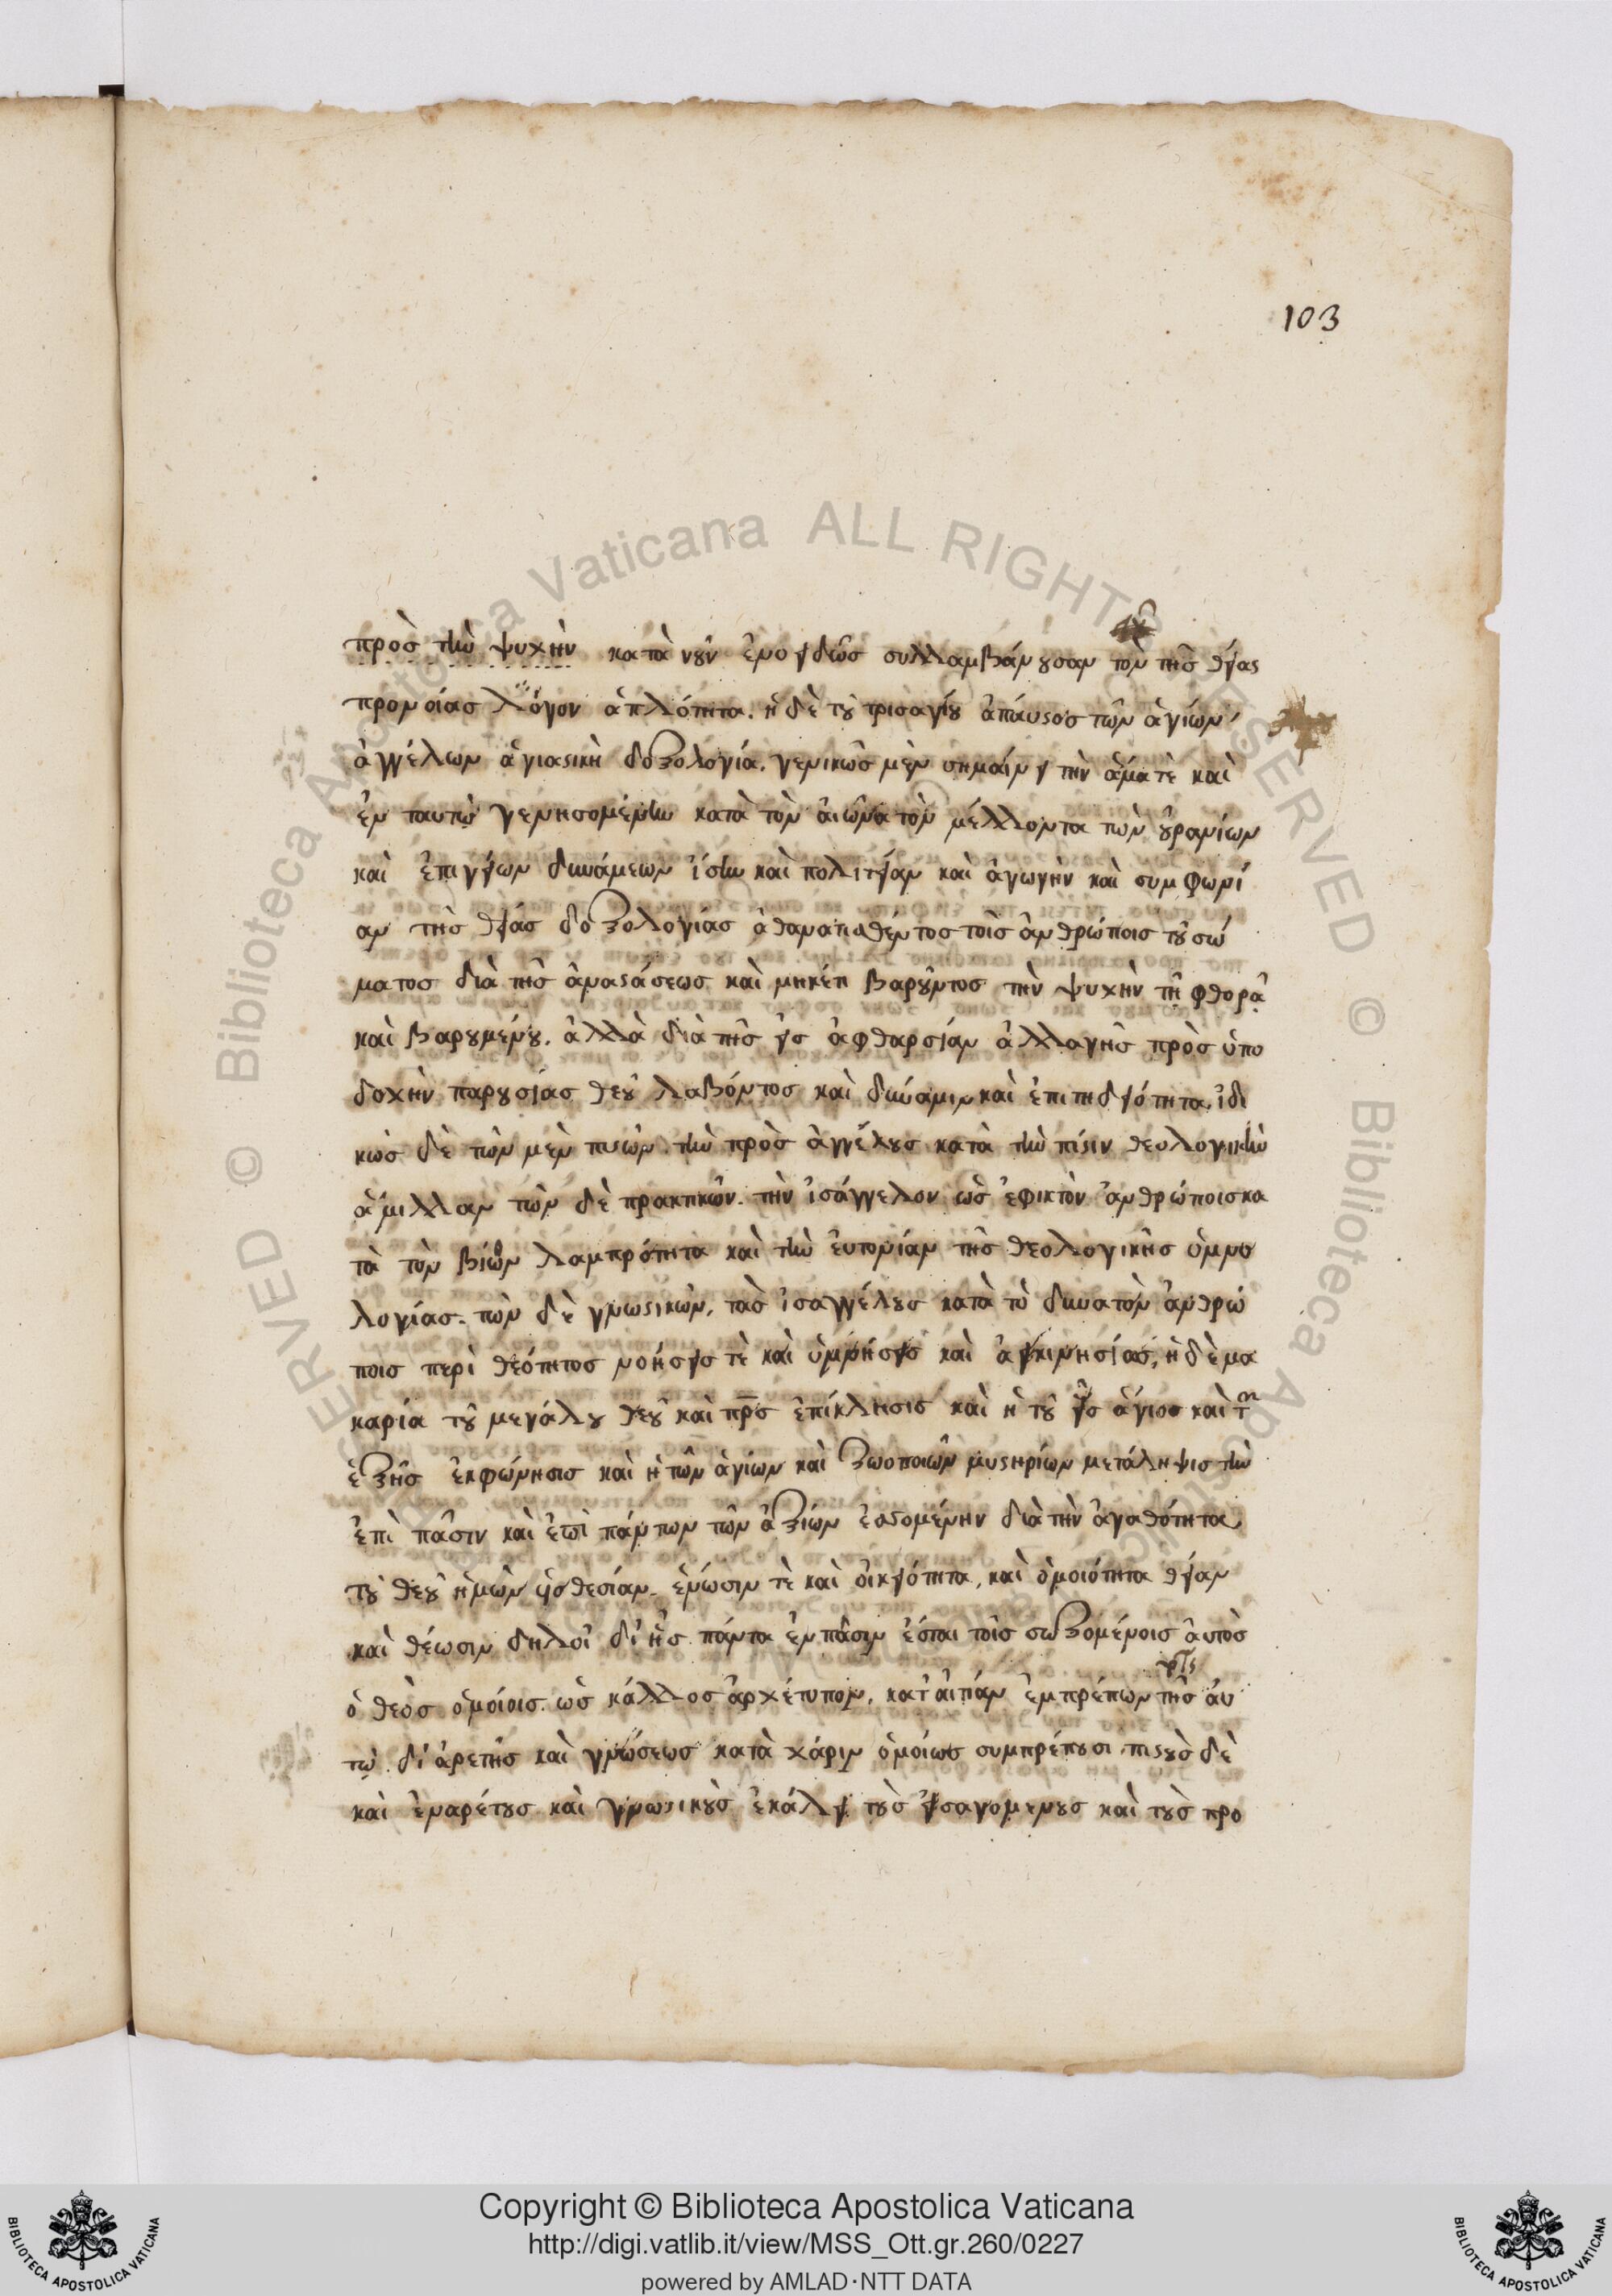 103
πρὸς τὴν ψυχὴν κατὰ νοῦν ἑνοειδῶς συλλαμβάνουσαν τὸν τῆς θείας
προνοίας λόγον ἁπλότητα. ἡ δὲ τοῦ τρισαγίου ἀπαύστος τῶν ἁγίων
ἀγγέλων ἁγιαστικὴ δοξολογία. γενικῶς μὲν σημαίνει τὴν ἅμα τὲ καὶ
ἐν ταυτῷ γενησομένην κατὰ τὸν αἰῶνα τὸν μέλλοντα τῶν οὐρανίων
καὶ ἐπιγείων δυνάμεων ἴσην καὶ πολιτείαν καὶ ἀγωγὴν καὶ συμφωνί
αν τῆς θείας δοξολογίας ἀθανατισθέντος τοῖς ἀνθρώποις τοῦ σώ
ματος διὰ τῆς ἀναστάσεως καὶ μηκέτι βαροῦντος τὴν ψυχὴν τῇ φθορᾷ
καὶ βαρουμένου. ἀλλὰ διὰ τῆς εἰς ἀφθαρσίαν ἀλλαγῆς πρὸς ὑπο
δοχὴν παρουσίας θεοῦ λαβόντος καὶ δύναμιν καὶ ἐπιτηδειότητα. ἰδι
κῶς δὲ τῶν μὲν πιστῶν. τὴν πρὸς ἀγγέλους κατὰ τὴν πίστιν θεολογικὴν
ἅμιλλαν τῶν δὲ πρακτικῶν. τὴν ἰσάγγελον ὡς ἐφικτὸν ἀνθρώποις κα
τὰ τὸν βίον λαμπρότητα καὶ τὴν εὐτονίαν τῆς θεολογικῆς ὑμνο
λογίας. τῶν δὲ γνωστικῶν. τὰς ἰσαγγέλους κατὰ τὸ δυνατὸν ἀνθρώ
ποις περὶ θεότητος νοήσεις τὲ καὶ ὑμνήσεις καὶ ἀεικινησίας. ἡ δὲ μα
καρία τοῦ μεγάλου θεοῦ καὶ πρς ἐπίκλησις καὶ ἡ τοῦ εἷς ἅγιος καὶ τῶν
ἑξῆς ἐκφώνησις καὶ ἡ τῶν ἁγίων καὶ ζωοποιῶν μυστηρίων μετάληψις τὴν
ἐπὶ πᾶσιν καὶ ἐπὶ πάντων τῶν ἀξίων ἐσομένην διὰ τὴν ἀγαθότητα
τοῦ θεοῦ ἡμῶν υἱοθεσίαν. ἕνωσιν τὲ καὶ οἰκειότητα, καὶ ὁμοιότητα θείαν
καὶ θέωσιν δηλοῖ δι' ἧς πάντα ἐν πᾶσιν ἔσται τοῖς σωζομένοις αὐτὸς
ὁ θεὸς ὁμοίοις. ὡς κάλλος ἀρχέτυπον, κατ' αἰτίαν ἐμπρέπων τῆς αὐ
τῷ. δι' ἀρετῆς καὶ γνώσεως κατὰ χάριν ὁμοίως συμπρέπουσι. πιστοὺς δὲ
καὶ ἐναρέτους καὶ γνωστικοὺς ἐκάλει τοὺς εἰσαγομένους καὶ τοὺς προ
Copyright © Biblioteca Apostolica Vaticana
http://digi.vatlib.it/view/MSS_Ott.gr.260/0227
powered by AMLAD·NTT DATA